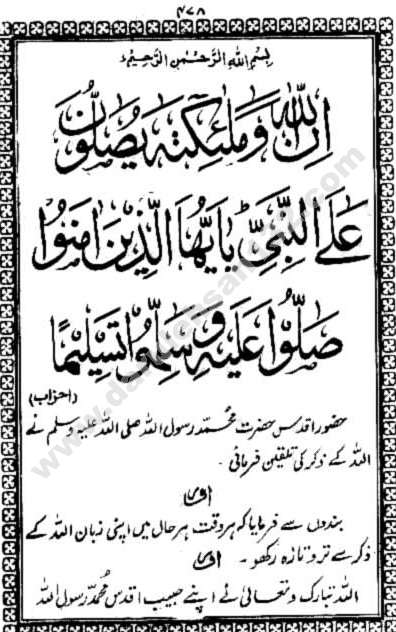 ۴۷۸
بِسْمِ اللهِ الرَّحْمٰنِ الرَّحِيْمِ
اِنَّ اللهَ وَمَلٰٓئِكَتَهٗ يُصَلُّوْنَ
عَلَى النَّبِيِّ ؕ يٰٓاَيُّهَا الَّذِيْنَ اٰمَنُوْا
صَلُّوْا عَلَيْهِ وَسَلِّمُوْا تَسْلِيْمًا
(احزاب)
حضور اقدس حضرت محمّد رسول اللہ صلی اللہ علیہ وسلم نے
اللہ کے ذکر کی تلقین فرمائی۔
اور
بندوں سے فرمایا کہ ہر وقت ہر حال میں اپنی زبان اللہ کے
ذکر سے تروتازہ رکھو۔ اور
اللہ تبارک وتعالیٰ نے اپنے حبیب اقدس محمّد رسول اللہ